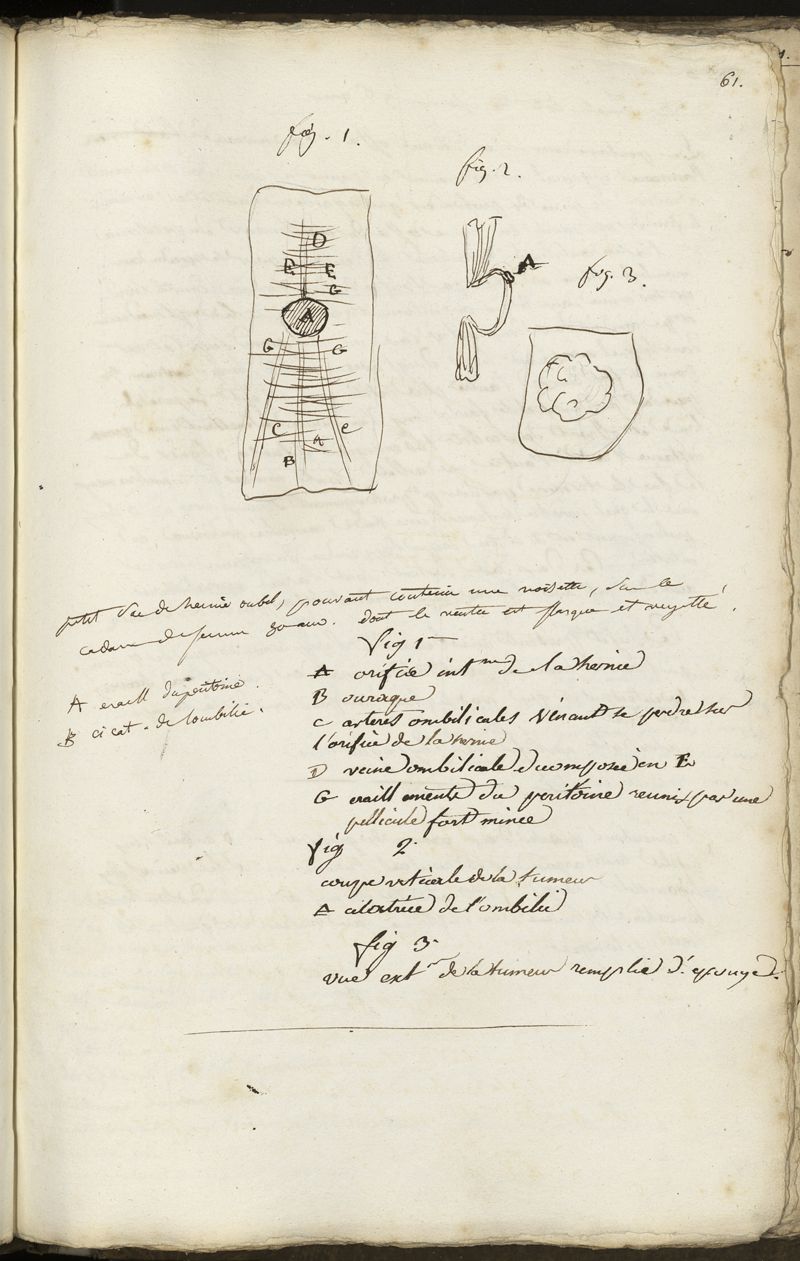 61.
fig. 1.
fig. 2.
fig. 3.
D
E E
G
A
G G
C A C
B
A
petit sac de hernie ombil, pouvant contenir une noisette, sur le
cadavre de femme 30 ans. dont le ventre est flasque et
fig 1
A orifice int.re de la hernie
B ouraque
C arteres ombilicales venant se perdre sur
l'orifice de la hernie
D veine ombilicale decomposée en E
G eraillements du peritoine reunis par une
pellicule fort mince
A eraill du peritoine.
B cicat. de l'ombilic.
fig 2.
coupe verticale de la tumeur
A cicatrice de l'ombilic
fig 3.
vue extre de la tumeur remplie d'